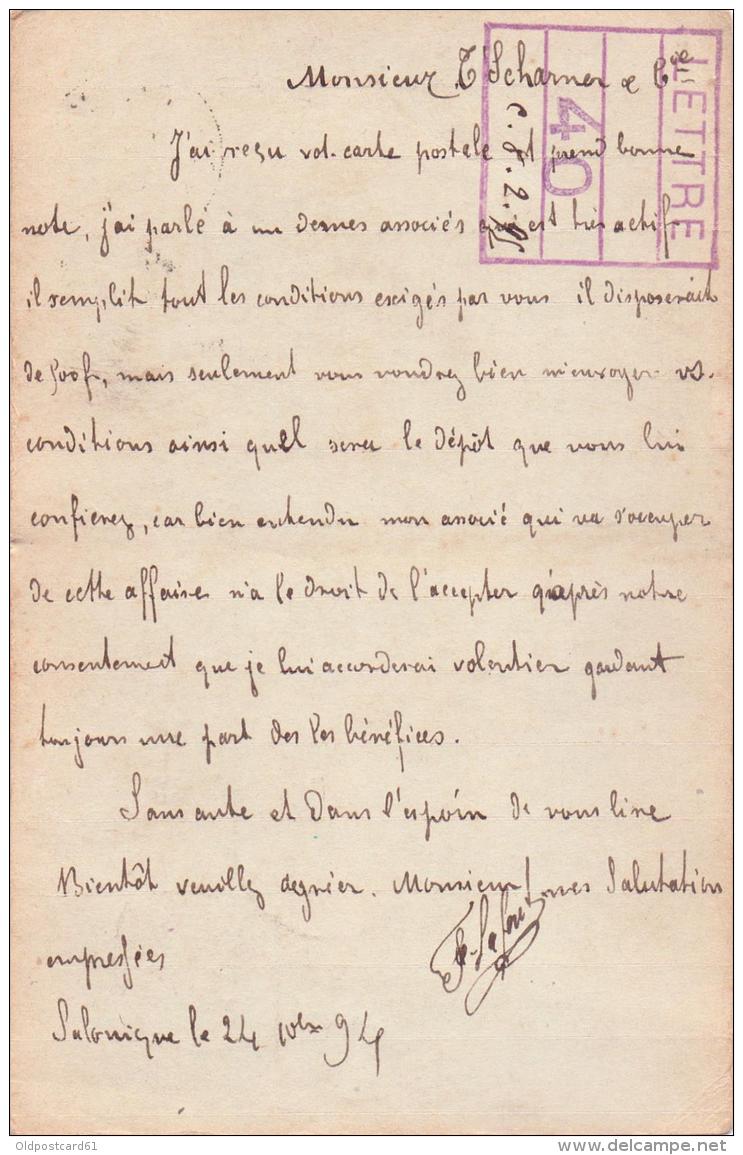 Monsieur T. Scharner & Cie
J'ai reçu vot. carte postele et prend bonne
note, j'ai parlé à un demes associés qui est très actif
il remplit tout les conditions exigés par vous il disposerait
de f, mais seulement vous voudrez bien m'envoyer vs.
conditions ainsi quel sera le dépôt que vous lui
confierez, car bien entendu mon associé qui va s'occuper
de cette affaire n'a le droit de l'accepter q'après notre
consentement que je lui accorderai volontier gardant
toujours une part des les bénéfices.
Sans autre et Dans l'espoir de vous lire
Bientôt veuillez agréer. Monsieur mes Salutation
empressées
Salonique le 24 10bre 94
LETTRE
40
Oldpostcard61
www.delcampe.net